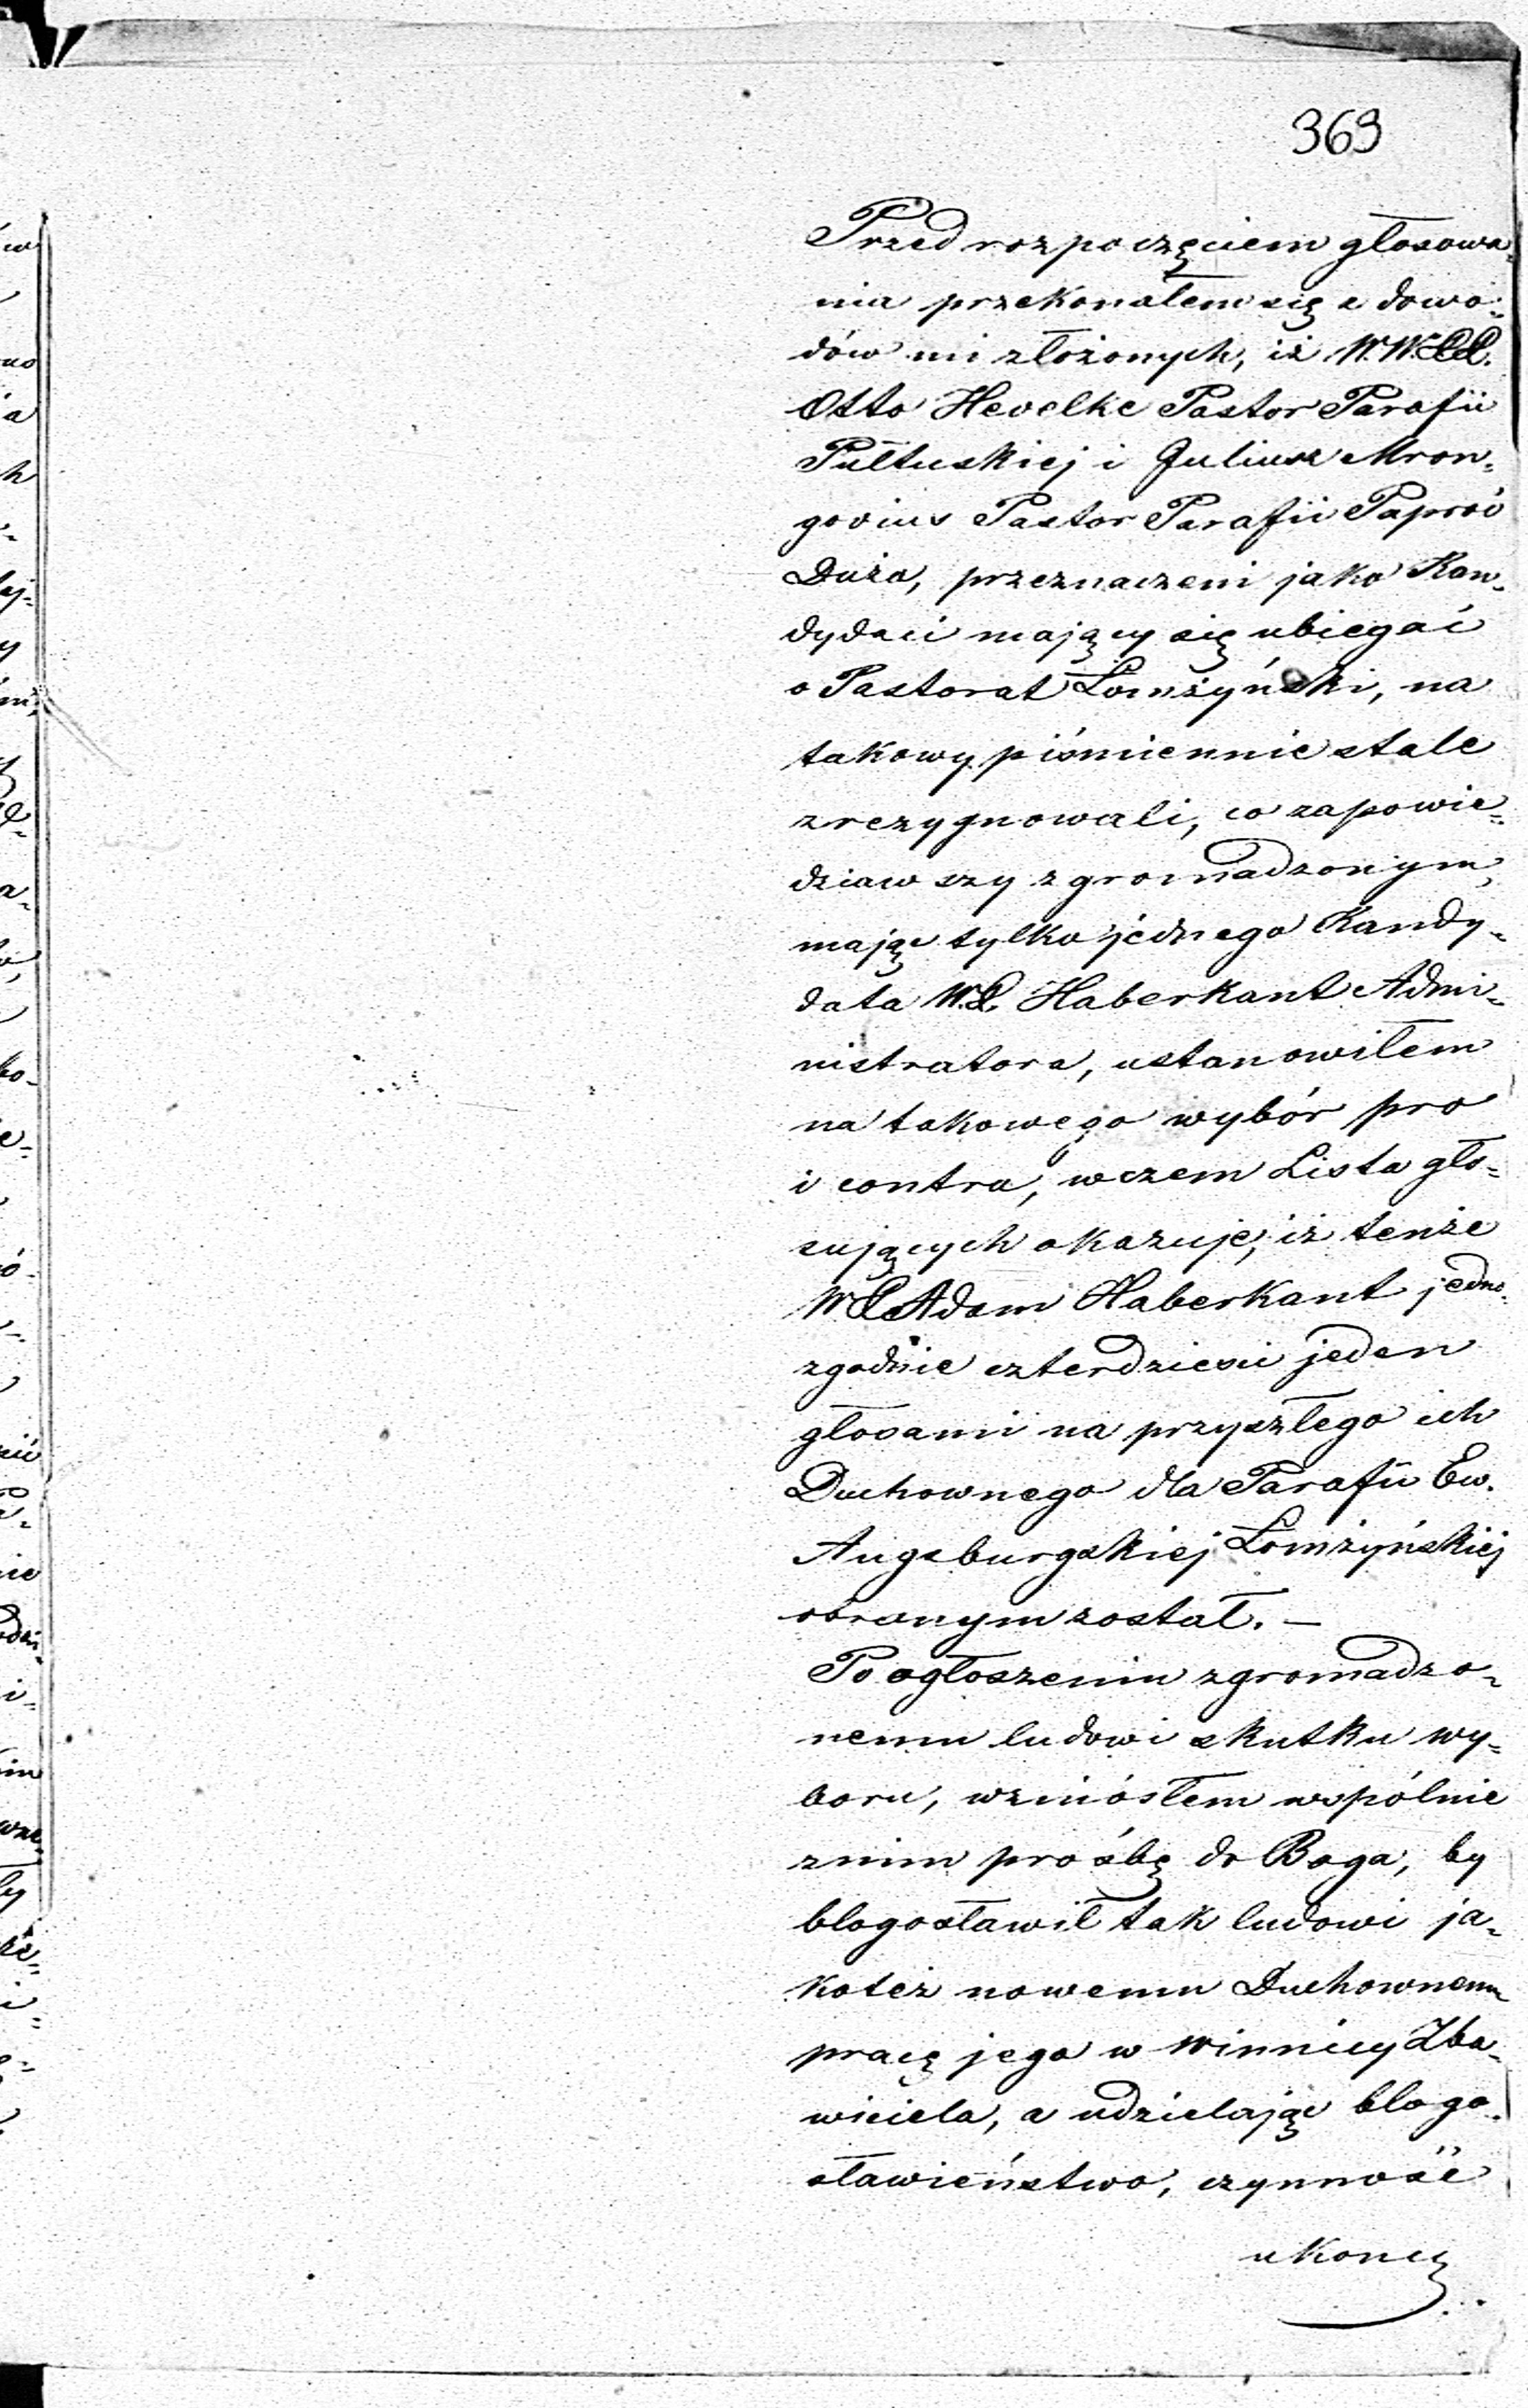 369
Przed rozpoczęciem głosowa-
nia przekonałem się z dowo-
dów mi złożonych, iż W.W.XX.
Otto Hevelke Pastor Parafii
Pułtuskiej i Juliusz Mron-
govius Pastor Parafii Paproć
Duża, przeznaczeni jako Kan-
dydaci mający się ubiegać
o Pastorat Łomżyński, na
takowy piśmiennie stale
zrezygnowali, co zapowie-
dziawszy zgromadzonym,
mając tylko jednego Kandy-
data W.X. Haberkant Admi-
nistratora, ustanowiłem
na takowego wybór pro
i contra, wczem Lista gło-
sujących okazuje, iż tenże
W.X. Adam Haberkant jedno-
zgodnie czterdzieści jeden
głosami na przyszłego ich
Duchownego dla Parafii Ew.
Augsburgskiej Łomżyńskiej
obranym został. —
Po ogłoszeniu zgromadzo-
nemu ludowi skutku wy-
boru, wzniósłem wspólnie
znim prośbę do Boga, by
blogosławił tak ludowi ja-
koteż nowemu Duchownemu
pracę jego w winnicy Zba-
wiciela, a udzielając blogo-
sławieństwo, czynność
ukończ